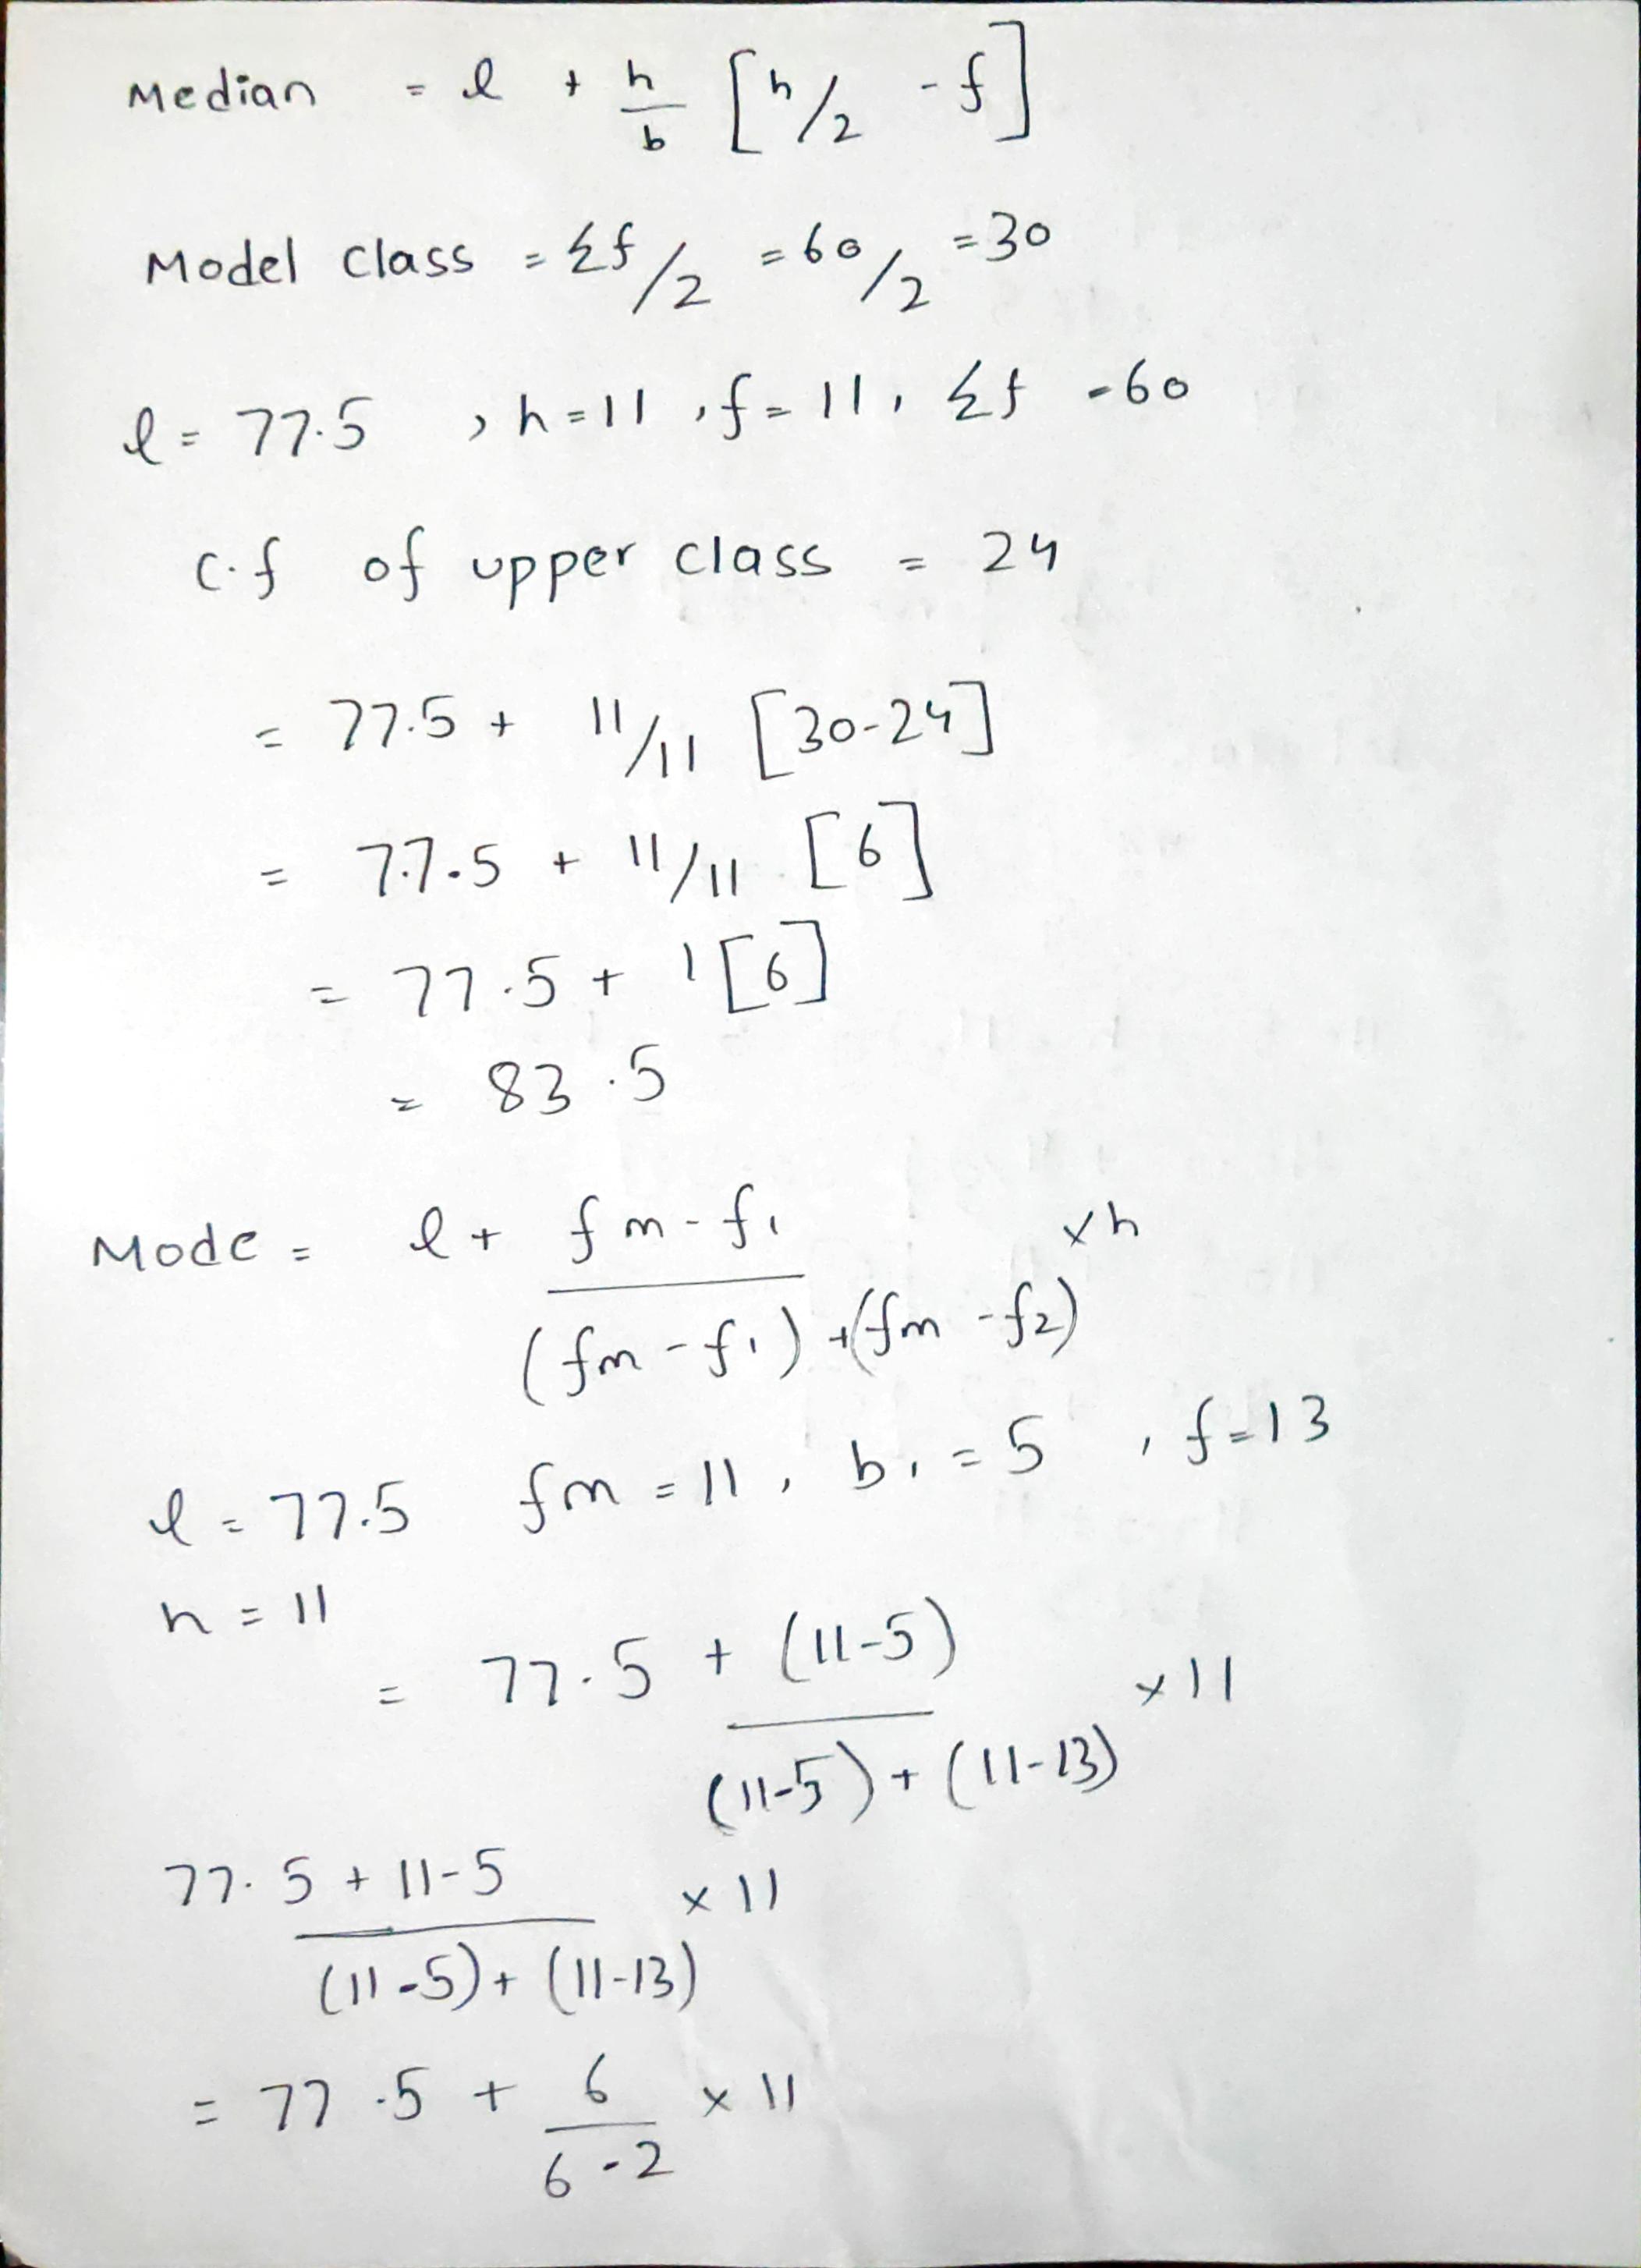 Median = l + h/b [n/2 - f]
Model class = Σf/2 = 60/2 = 30
l = 77.5 , h = 11 , f = 11 , Σf = 60
c.f of upper class = 24
= 77.5 + 11/11 [30-24]
= 77.5 + 11/11 [6]
= 77.5 + 1 [6]
= 83.5
Mode = l + fm - f1 / (fm - f1) + (fm - f2) x h
l = 77.5 fm = 11 , b1 = 5 , f = 13
h = 11
= 77.5 + (11-5) / (11-5) + (11-13) x 11
77.5 + 11-5 / (11-5) + (11-13) x 11
= 77.5 + 6 / 6-2 x 11